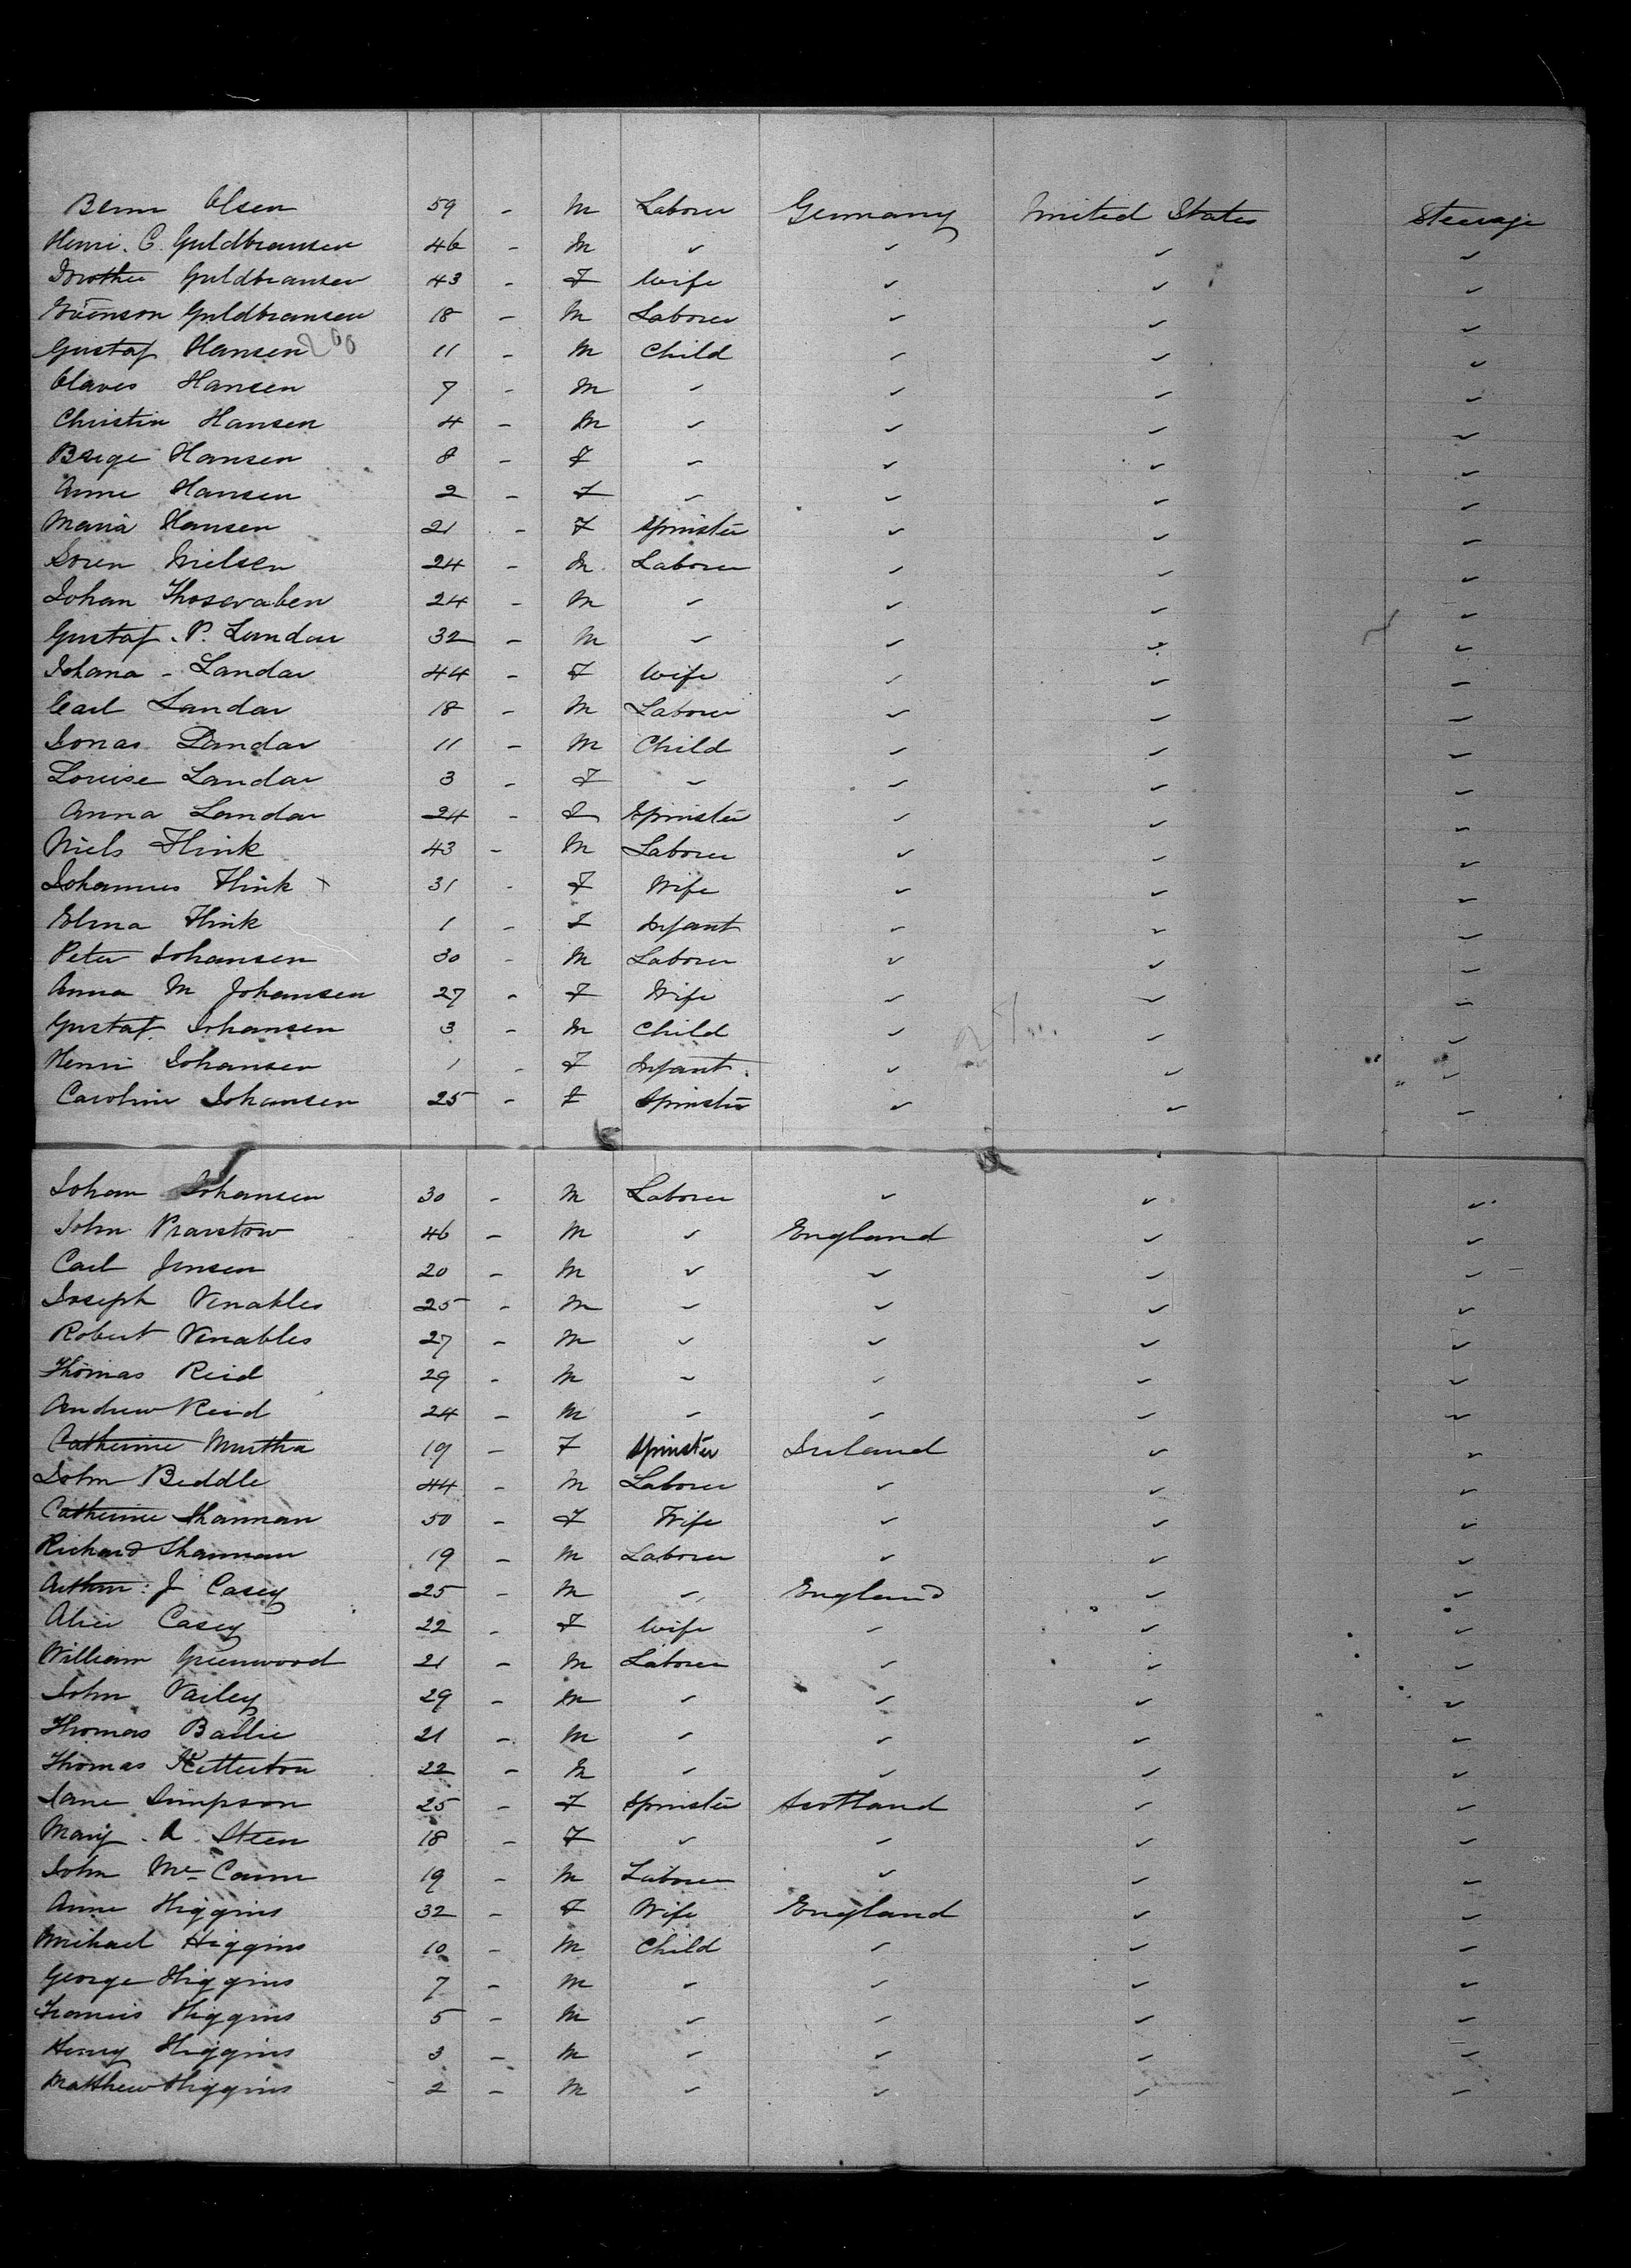 Benn Olsen 59 - M Laborer Germany United States Steerage
Henri. C. Guldbransen 46 - M ✓ ✓ ✓ ✓
Dorothee Guldbransen 43 - F Wife ✓ ✓ ✓
Guldbransen 18 - M Laborer ✓ ✓ ✓
Gustaf Hansen 200 11 - M Child ✓ ✓ ✓
Claves Hansen 7 - M ✓ ✓ ✓ ✓
Christin Hansen 4 - M ✓ ✓ ✓ ✓
Hansen 8 - F ✓ ✓ ✓ ✓
Anne Hansen 2 - F ✓ ✓ ✓ ✓
Maria Hansen 21 - F Spinster ✓ ✓ ✓
Soren Nielsen 24 - M Laborer ✓ ✓ ✓
Johan Thoseraben 24 - M ✓ ✓ ✓ ✓
Gustaf. P. Landar 32 - M ✓ ✓ ✓ ✓
Johana - Landar 44 - F Wife ✓ ✓ ✓
Carl Landar 18 - M Laborer ✓ ✓ ✓
Jonas Landar 11 - M Child ✓ ✓ ✓
Louise Landar 3 - F ✓ ✓ ✓ ✓
Anna Landar 24 - F Spinster ✓ ✓ ✓
Niels Flink 43 - M Laborer ✓ ✓ ✓
Johannes Flink x 31 - F Wife ✓ ✓ ✓
Elma Flink 1 - F Infant ✓ ✓ ✓
Peter Johansen 30 - M Laborer ✓ ✓ ✓
Anna M Johansen 27 - F Wife ✓ ✓ ✓
Gustaf Johansen 3 - M Child ✓ ✓ ✓
Henri Johansen 1 - F Infant ✓ ✓ ✓
Carolin Johansen 25 - F Spinster ✓ ✓ ✓
Johan Johansen 30 - M Laborer ✓ ✓ ✓
John Pravstow 46 - M ✓ England ✓ ✓
Carl Jensen 20 - M ✓ ✓ ✓ ✓
Joseph Venables 25 - M ✓ ✓ ✓ ✓
Robert Venables 27 - M ✓ ✓ ✓ ✓
Thomas Reid 29 - M ✓ ✓ ✓ ✓
Andrew Reid 24 - M ✓ ✓ ✓ ✓
Catherine Murtha 19 - F Spinster Ireland ✓ ✓
John Beddle 44 - M Laborer ✓ ✓ ✓
Catherine Shannan 50 - F Wife ✓ ✓ ✓
Richard Shannan 19 - M Laborer ✓ ✓ ✓
Arthur. J Casey 25 - M ✓ England ✓ ✓
Alice Casey 22 - F Wife ✓ ✓ ✓
William Greenwood 21 - M Laborer ✓ ✓ ✓
John Varley 29 - M ✓ ✓ ✓ ✓
Thomas Bailie 21 - M ✓ ✓ ✓ ✓
Thomas Ketterton 22 - M ✓ ✓ ✓ ✓
Jane Simpson 25 - F Spinster Scotland ✓ ✓
Mary. A. Steen 18 - F ✓ ✓ ✓ ✓
John Mc Cann 19 - M Laborer ✓ ✓ ✓
Anne Higgins 32 - F Wife England ✓ ✓
Michael Higgins 10 - M Child ✓ ✓ ✓
George Higgins 7 - M ✓ ✓ ✓ ✓
Francis Higgins 5 - M ✓ ✓ ✓ ✓
Henry Higgins 3 - M ✓ ✓ ✓ ✓
Matthew Higgins 2 - M ✓ ✓ ✓ ✓